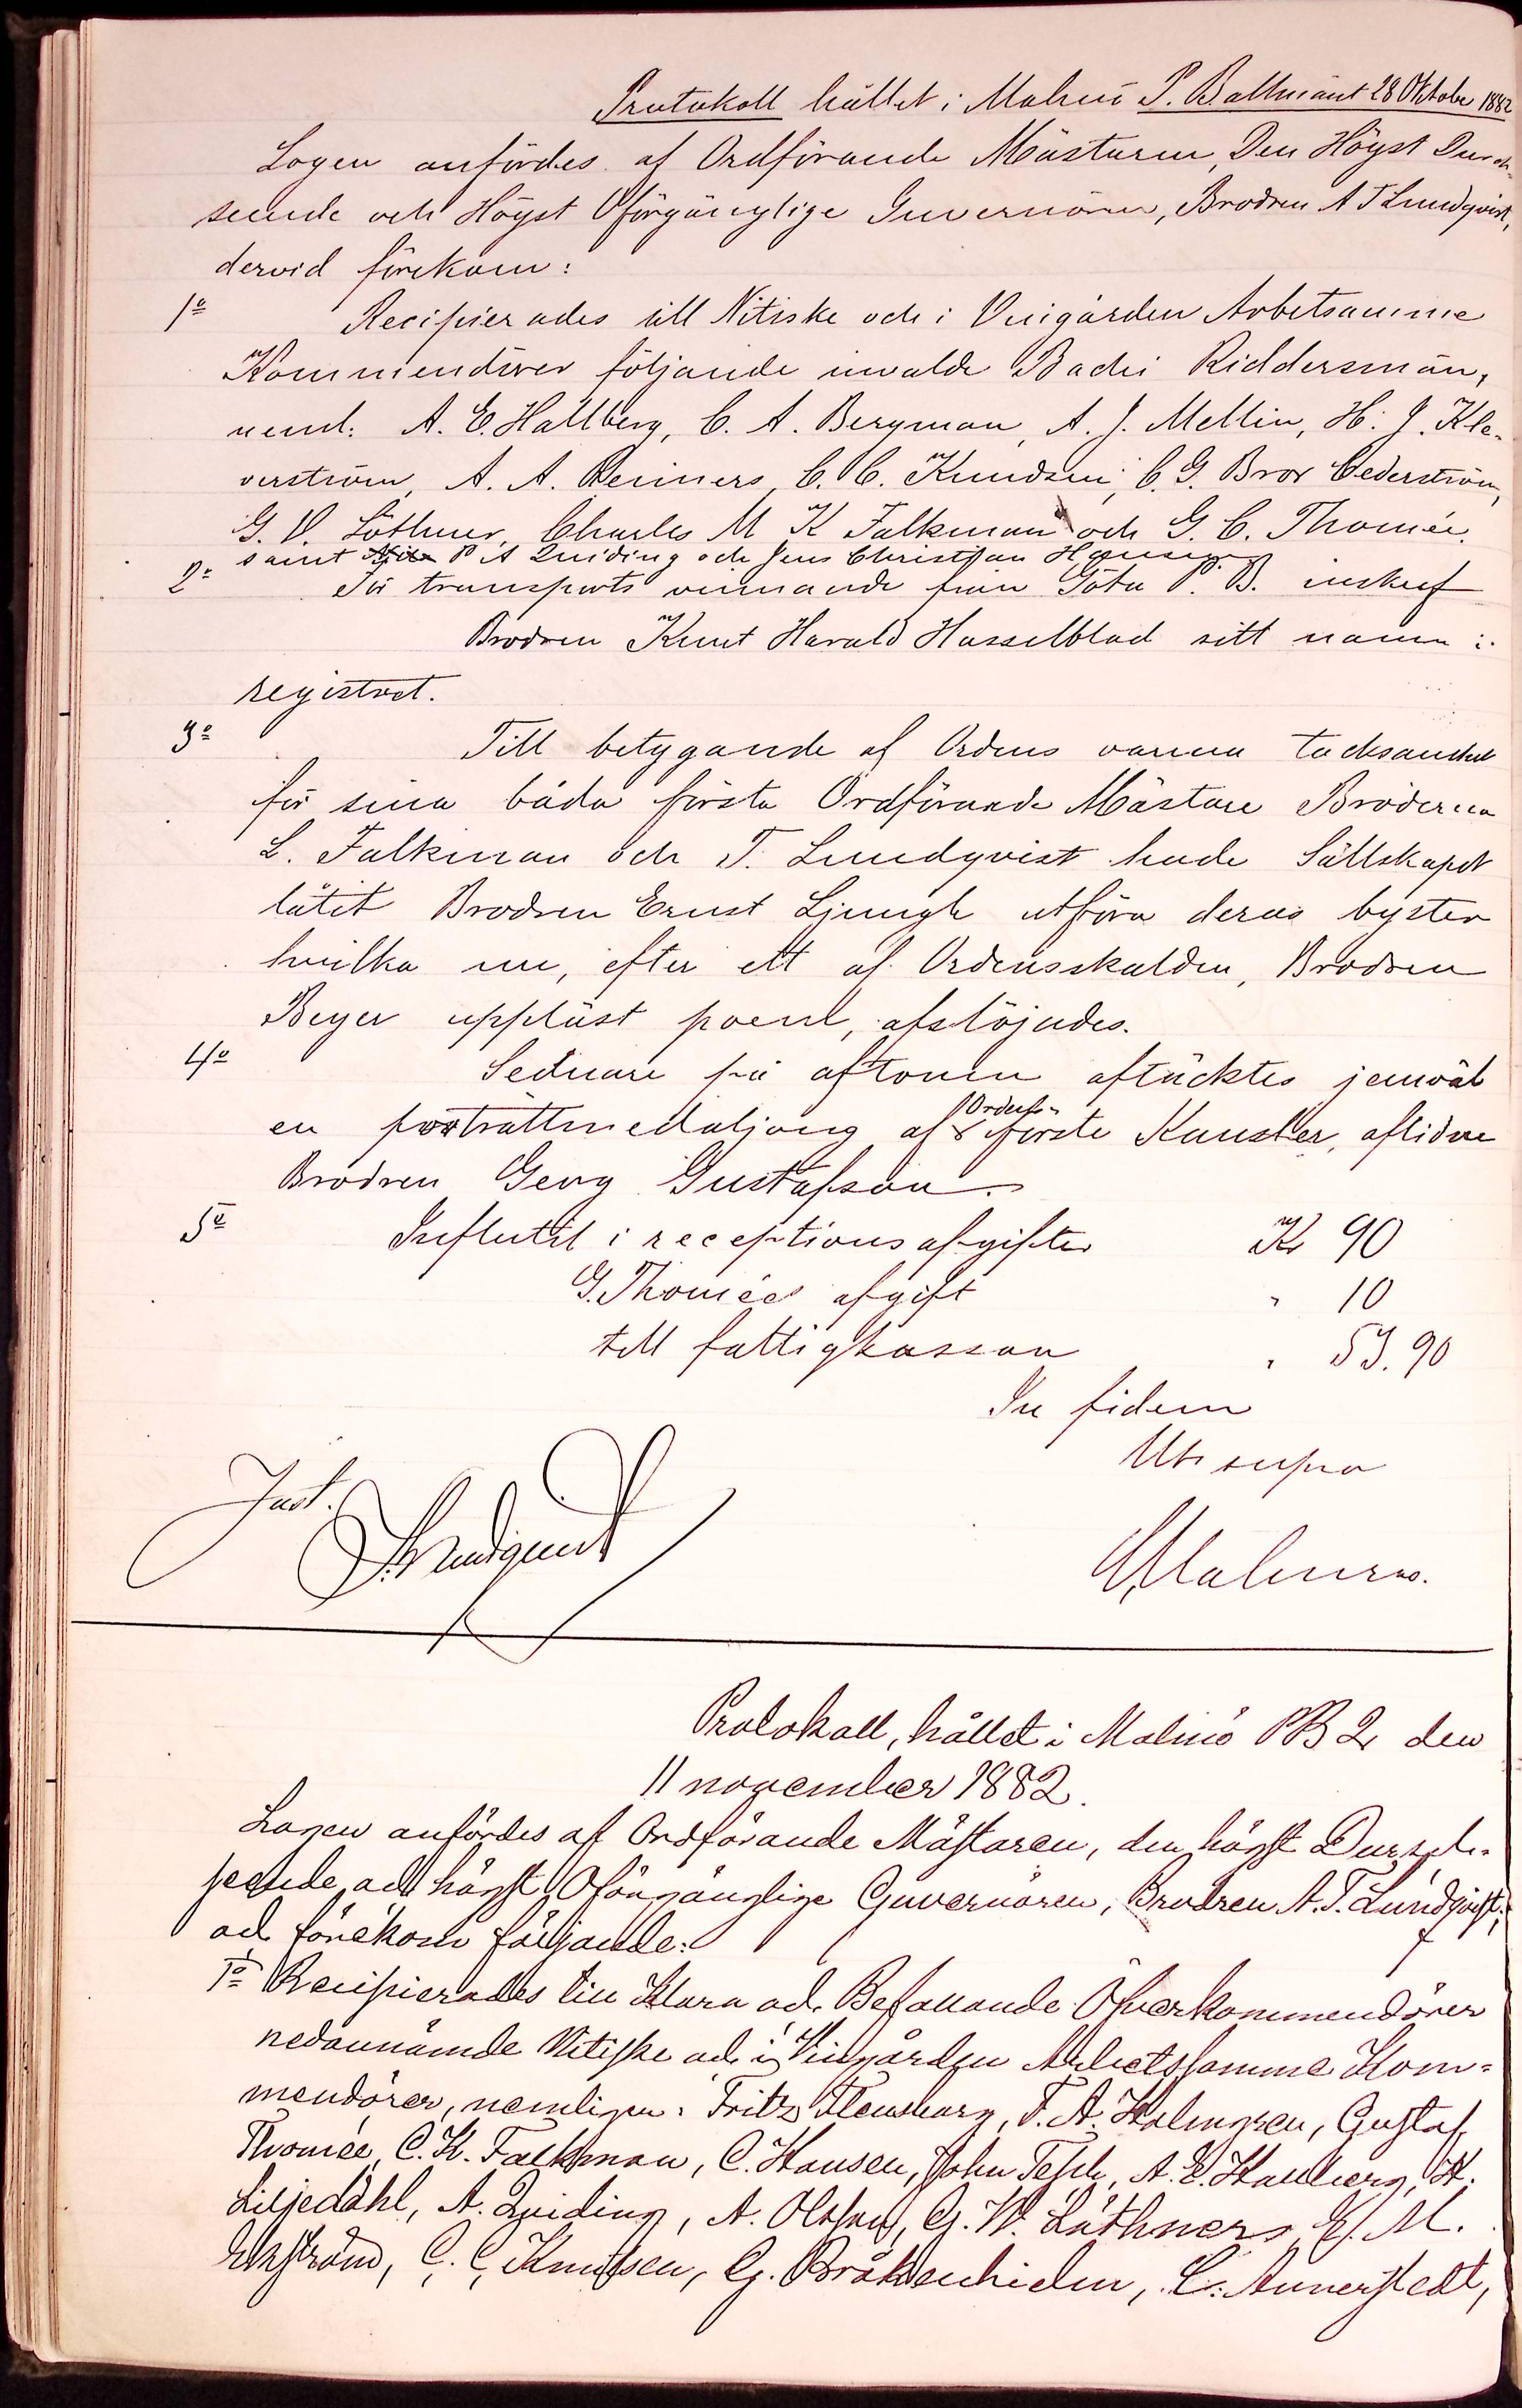 Protokoll hållet i Malmö P. B. allmänt 28 Oktober 1882
Logen anfördes af Ordförande Mästaren, Den Högst Durch-
seende och Högst Oförgänglige Guvernören, Brodren A T Lundqvist,
dervid förekom:
1o Recipierades till Nitiske och i Vingården Arbetsamme
Kommendörer följande invalde Bachi Riddersmän,
neml: A. E. Hallberg, C. A. Bergman, A. J. Mellin, H. J. Kle-
verström, A. A. Reiners, C. C. Knudsen, C. G. Bror Cederström,
G. V. Löthner, Charles M K Falkman och G. C. Thomée.
samt P A Quiding och Jens Christian Hansen
2o För transports vinnande från Göta P. B. inskref
Brodren Knut Harald Hasselblad sitt namn i
registret.
3o Till betygande af Ordens varma tacksamhet
för sina båda första Ordförande Mästare Bröderna
L. Falkman och T. Lundqvist hade Sällskapet
låtit Brodren Ernst Ljungh utföra deras byster
hvilka nu, efter ett af Ordensskalden, Brodren
Beyer uppläst poem, afslöjades.
4o Sednare på aftonen aftäcktes jemväl
en porträttmedaljong af Ordens förste Kansler, aflidne
Brodren Georg Gustafsson.
5o Influtit i receptionsafgifter Kr 90
G. Thomées afgift " 10
till fattigkassan " 53.90
In fidem
Ut supra
Just.
T. Lundquist
Malmros.
Protokoll, hållet i Malmö PB 2 den
11 november 1882.
Logen anfördes af Ordförande Mästaren, den högst Durch-
seende och högst Oförgänglige Guvernören, Brodren A. T. Lundqvist,
och förekom följande:
1o Recipierades till Klara och Befallande Öfverkommendörer
nedannämnde Nitiske och i Vingården Arbetsamme Kom-
mendörer, nemligen: Fritz Flensburg, F. A. Holmgren, Gustaf
Thomée, C. K. Falkman, C. Hansen, John Tesch, A. E. Hallberg, H.
Liljedahl, A. Quiding, A. Olsson, G. W. Löthner, E. M.
Ekström, C. C. Knudsen, G. Bråkenhielm, C. Annerstedt,